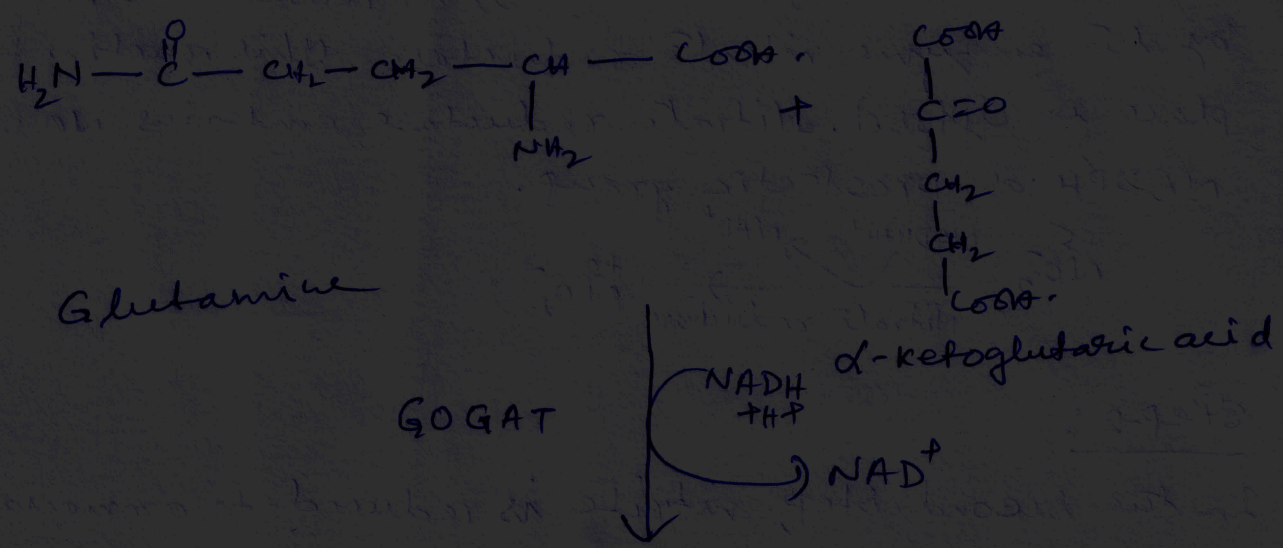 H₂N — C — CH₂ — CH₂ — CH — COOH.
O
NH₂
+
COOH
C=O
CH₂
CH₂
COOH.
Glutamine
α-ketoglutaric acid
GOGAT
NADH
+H+
NAD⁺